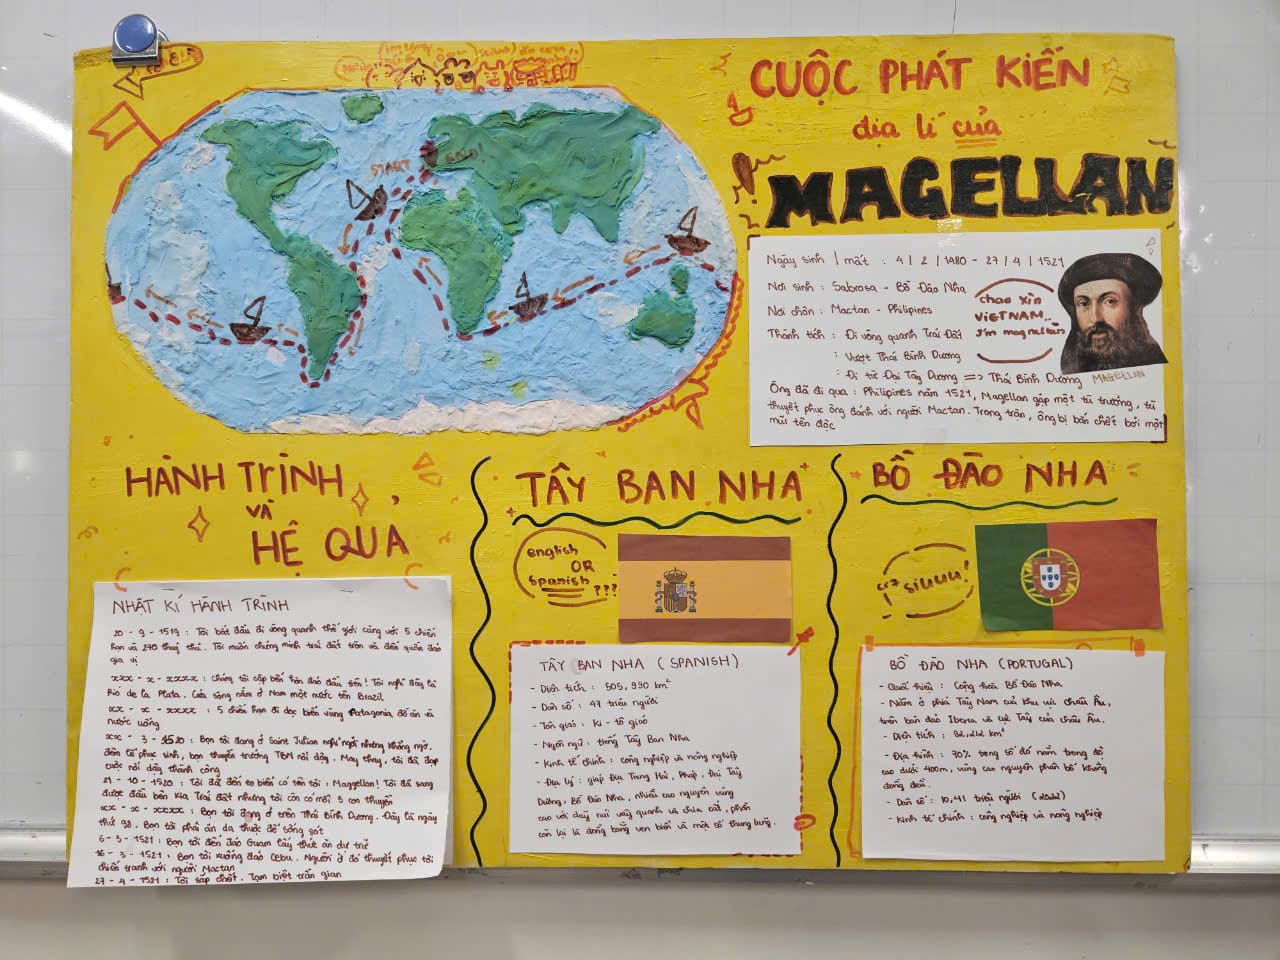 START
CUỘC PHÁT KIẾN
địa lí của
MAGELLAN
Ngày sinh / mất : 4 / 2 / 1480 - 27 / 4 / 1521
Nơi sinh : Sabrosa - Bồ Đào Nha
Nơi chôn : Mactan - Philipines
Thành tích : Đi vòng quanh Trái Đất
: Vượt Thái Bình Dương
: Đi từ Đại Tây Dương => Thái Bình Dương
chao xìn
VIETNAM..
I'm magnellan
MAGELLAN
Ông đã đi qua : Philipines năm 1521, Magellan gặp một tù trưởng, tù
thuyết phục ông đánh với người Mactan. Trong trận, ông bị bắn chết bởi một
mũi tên độc
HÀNH TRÌNH
VÀ
HỆ QUẢ
NHẬT KÍ HÀNH TRÌNH
20 - 9 - 1519 : Tôi bắt đầu đi vòng quanh thế giới cùng với 5 chiến
hạn và 270 thuỷ thủ. Tôi muốn chứng minh trái đất tròn và đến quần đảo
gia vị
xxx - x - xxxx : chúng tôi cập bến hòn đảo đầu tiên! Tôi nghĩ đây là
Rio de la Plata. Cửa sông nằm ở Nam một nước tên Brazil
xx - x - xxxx : 5 chiến hạn đi dọc biển vùng Patagonia, để ăn và
nước uống
xx - 3 - 1520 : Bọn tôi đang ở Saint Julian nghỉ ngơi nhưng không mở,
đêm lễ phục sinh, bọn thuyền trưởng TBN nổi dậy. May thay, tôi đã dẹp
cuộc nổi dậy thành công
21 - 10 - 1520 : Tôi đã đến eo biển có tên tôi : Magellan! Tôi đã sang
được đầu bên kia Trái đất nhưng tôi còn có mỗi 3 con thuyền
xx - x - xxxx : Bọn tôi đang ở trên Thái Bình Dương. Đây là ngày
thứ 98. Bọn tôi phải ăn da thuộc để sống sót
6 - 3 - 1521 : Bọn tôi đến đảo Guam lấy thức ăn dự trữ
16 - 3 - 1521 : Bọn tôi xuống đảo Cebu. Người ở đó thuyết phục tôi
chiến tranh với người Mactan
27 - 4 - 1521 : Tôi sắp chết. Tạm biệt trần gian
TÂY BAN NHA
english
OR
spanish
???
TÂY BAN NHA ( SPANISH)
- Diện tích : 505,990 km²
- Dân số : 47 triệu người
- Tôn giáo : Ki - tô giáo
- Ngôn ngữ : tiếng Tây Ban Nha
- Kinh tế chính : công nghiệp và nông nghiệp
- Địa lý : giáp Địa Trung Hải, Pháp, Đại Tây
Dương, Bồ Đào Nha, nhiều cao nguyên vùng
cao với dãy núi vây quanh và chia cắt, phần
còn lại là đồng bằng ven biển và một số thung lũng.
BỒ ĐÀO NHA
cr7
siuuu!
BỒ ĐÀO NHA (PORTUGAL)
- Quốc hiệu : Cộng hoà Bồ Đào Nha
- Nằm ở phía Tây Nam của khu vực châu Âu,
trên bán đảo Iberia và cực Tây của châu Âu.
- Diện tích : 92,212 km²
- Địa hình : 70% trong số đó nằm trong độ
cao dưới 400m, vùng cao nguyên phân bố không
đồng đều.
- Dân số : 10,41 triệu người (2022)
- Kinh tế chính : công nghiệp và nông nghiệp